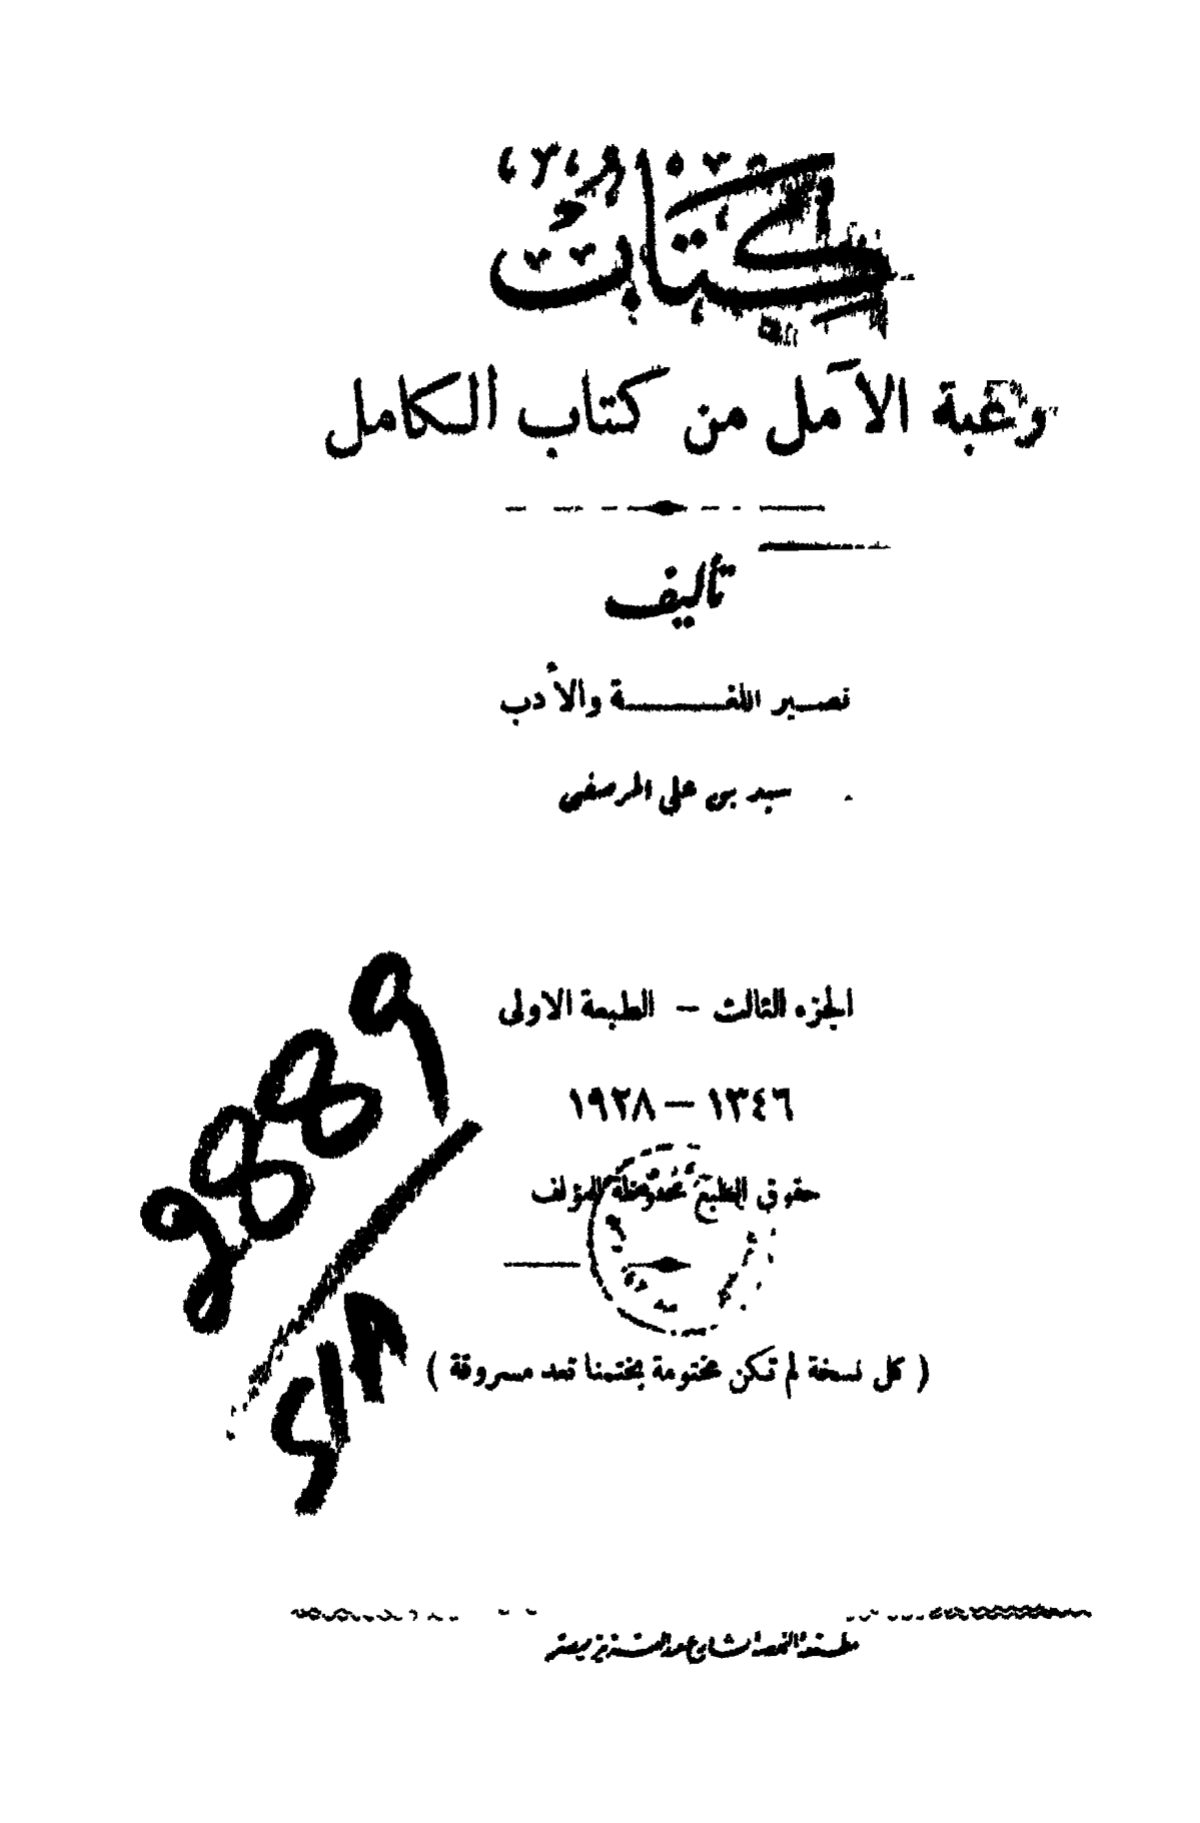 كتاب
رغبة الآمل من كتاب الكامل
تأليف
نصير اللغة والأدب
سيد بن علي المرصفي
الجزء الثالث – الطبعة الاولى
١٣٤٦ – ١٩٢٨
حقوق الطبع محفوظة للمؤلف
( كل نسخة لم تكن مختومة بختمنا تعد مسروقة )
2889
مطبعة النهضة شارع عبد العزيز بمصر